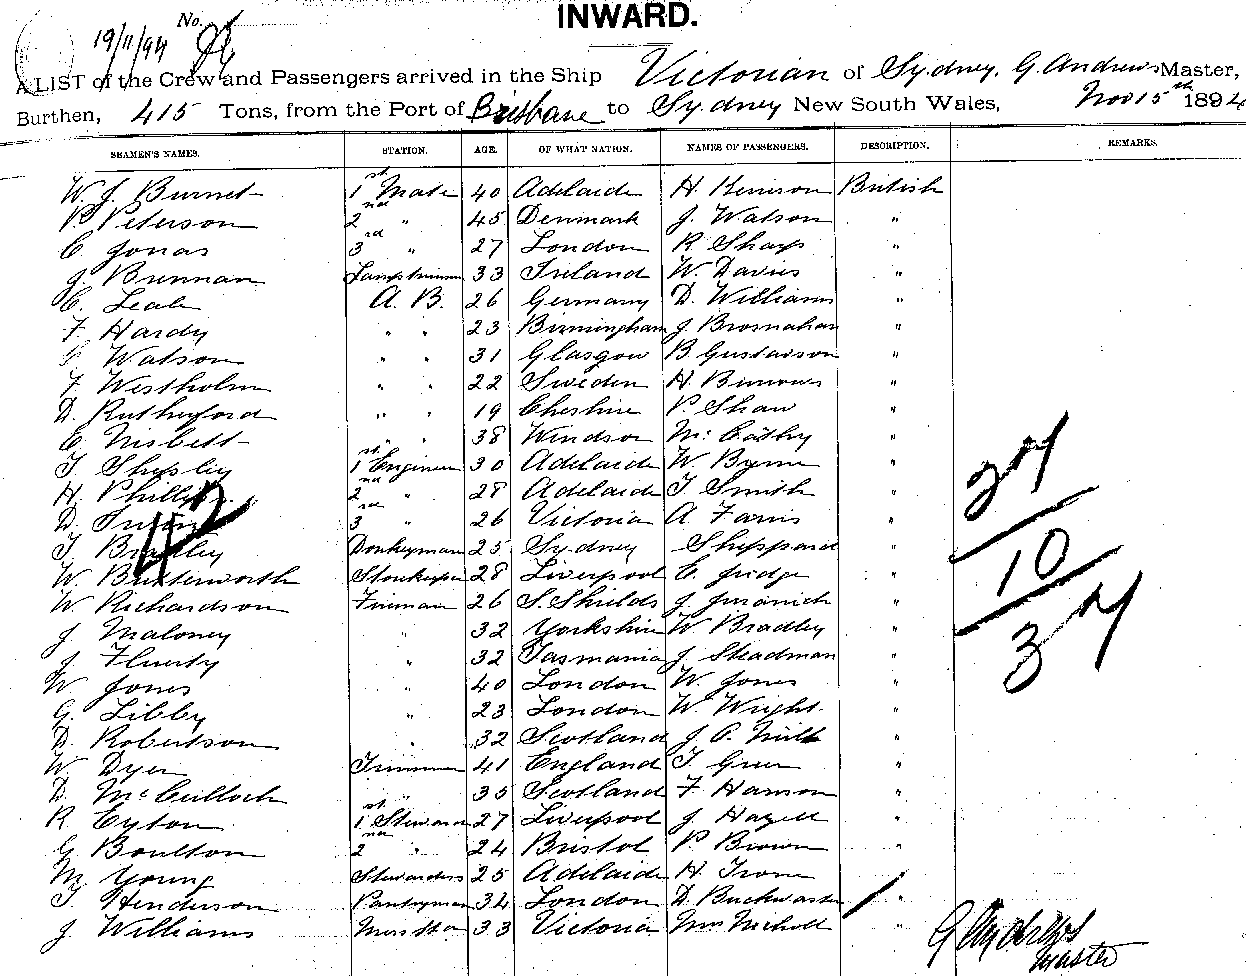 19/11/94 No.
INWARD.
A LIST of the Crew and Passengers arrived in the Ship Victorian of Sydney, G. Andrews Master,
Burthen, 415 Tons, from the Port of Brisbane to Sydney New South Wales, Nov 15th 1894
SEAMEN'S NAMES. STATION. AGE. OF WHAT NATION. NAMES OF PASSENGERS. DESCRIPTION. REMARKS.
W. J. Burnet 1st Mate 40 Adelaide H. Kenison British
P. Peterson 2nd " 45 Denmark J. Watson "
C. Jonas 3rd " 27 London R. Sharp "
J. Brennan Lamptrimmer 33 Ireland W. Davies "
C. Leale A. B. 26 Germany D. Williams "
F. Hardy " " 23 Birmingham J. Brosnahan "
G. Watson " " 31 Glasgow B. Gustavson "
F. Westholm " " 22 Sweden H. Burrows "
D. Rutherford " " 19 Cheshire P. Shaw "
C. Nisbett " " 38 Windsor McCathy "
T. Shepley 1st Engineer 30 Adelaide W. Byrne "
H. Phillips 2nd " 28 Adelaide T. Smith "
D. 3rd " 26 Victoria A. Farris "
T. Bradley Donkeyman 25 Sydney Sheppard "
42
W. Butterworth Storekeeper 28 Liverpool C. Judge "
W. Richardson Fireman 26 S. Shields J. Juranich "
J. Maloney " 32 Yorkshire W. Bradley "
J. Fluerty " 32 Tasmania J. Steadman "
W. Jones " 40 London W. Jones "
G. Libby " 23 London W. Wright "
D. Robertson " 32 Scotland J. A. "
W. Dyer Trimmer 41 England T. Green "
D. McCulloch " 35 Scotland F. Hanson "
R. Eyton 1st Steward 27 Liverpool J. Hazell "
G. Boulton 2nd " 24 Bristol P. Brown "
M. Young Stewardess 25 Adelaide H. Irons "
T. Henderson Pantryman 34 London D. "
J. Williams 33 Victoria Mrs Nicholl "
27
10
37
G Andrews
Master